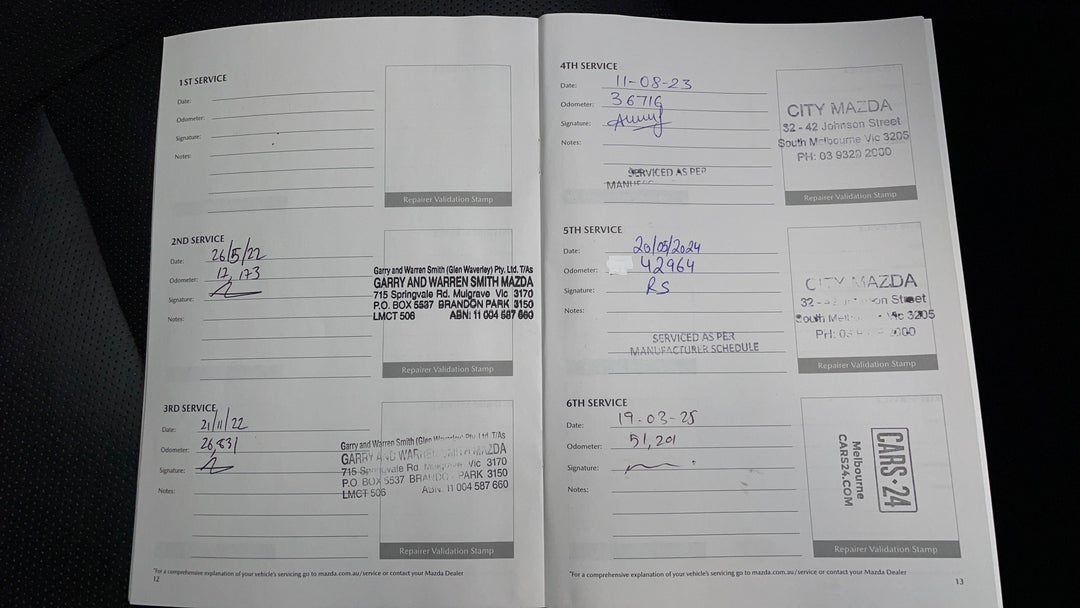 1ST SERVICE
Date:
Odometer:
Signature:
Notes:
Repairer Validation Stamp
2ND SERVICE
Date: 26/5/22
Odometer: 12,173
Signature:
Notes:
Garry and Warren Smith (Glen Waverley) Pty. Ltd. T/As
GARRY AND WARREN SMITH MAZDA
715 Springvale Rd. Mulgrave Vic 3170
P.O. BOX 5537 BRANDON PARK 3150
LMCT 506 ABN: 11 004 587 660
Repairer Validation Stamp
3RD SERVICE
Date: 21/11/22
Odometer: 26,831
Signature:
Notes:
Garry and Warren Smith (Glen Waverley) Pty. Ltd. T/As
GARRY AND WARREN SMITH MAZDA
715 Springvale Rd. Mulgrave Vic 3170
P.O. BOX 5537 BRANDON PARK 3150
LMCT 506 ABN: 11 004 587 660
Repairer Validation Stamp
*For a comprehensive explanation of your vehicle's servicing go to mazda.com.au/service or contact your Mazda Dealer
12
4TH SERVICE
Date: 11-08-23
Odometer: 36716
Signature:
Notes:
SERVICED AS PER
CITY MAZDA
32 - 42 Johnson Street
South Melbourne Vic 3205
PH: 03 9320 2000
Repairer Validation Stamp
5TH SERVICE
Date: 20/05/2024
Odometer: 42964
Signature: RS
Notes:
SERVICED AS PER
MANUFACTURER SCHEDULE
CITY MAZDA
32 - 42 Johnson Street
South Vic 3205
PH: 03 2000
Repairer Validation Stamp
6TH SERVICE
Date: 19-03-25
Odometer: 51,201
Signature:
Notes:
CARS·24
Melbourne
CARS24.COM
Repairer Validation Stamp
*For a comprehensive explanation of your vehicle's servicing go to mazda.com.au/service or contact your Mazda Dealer
13